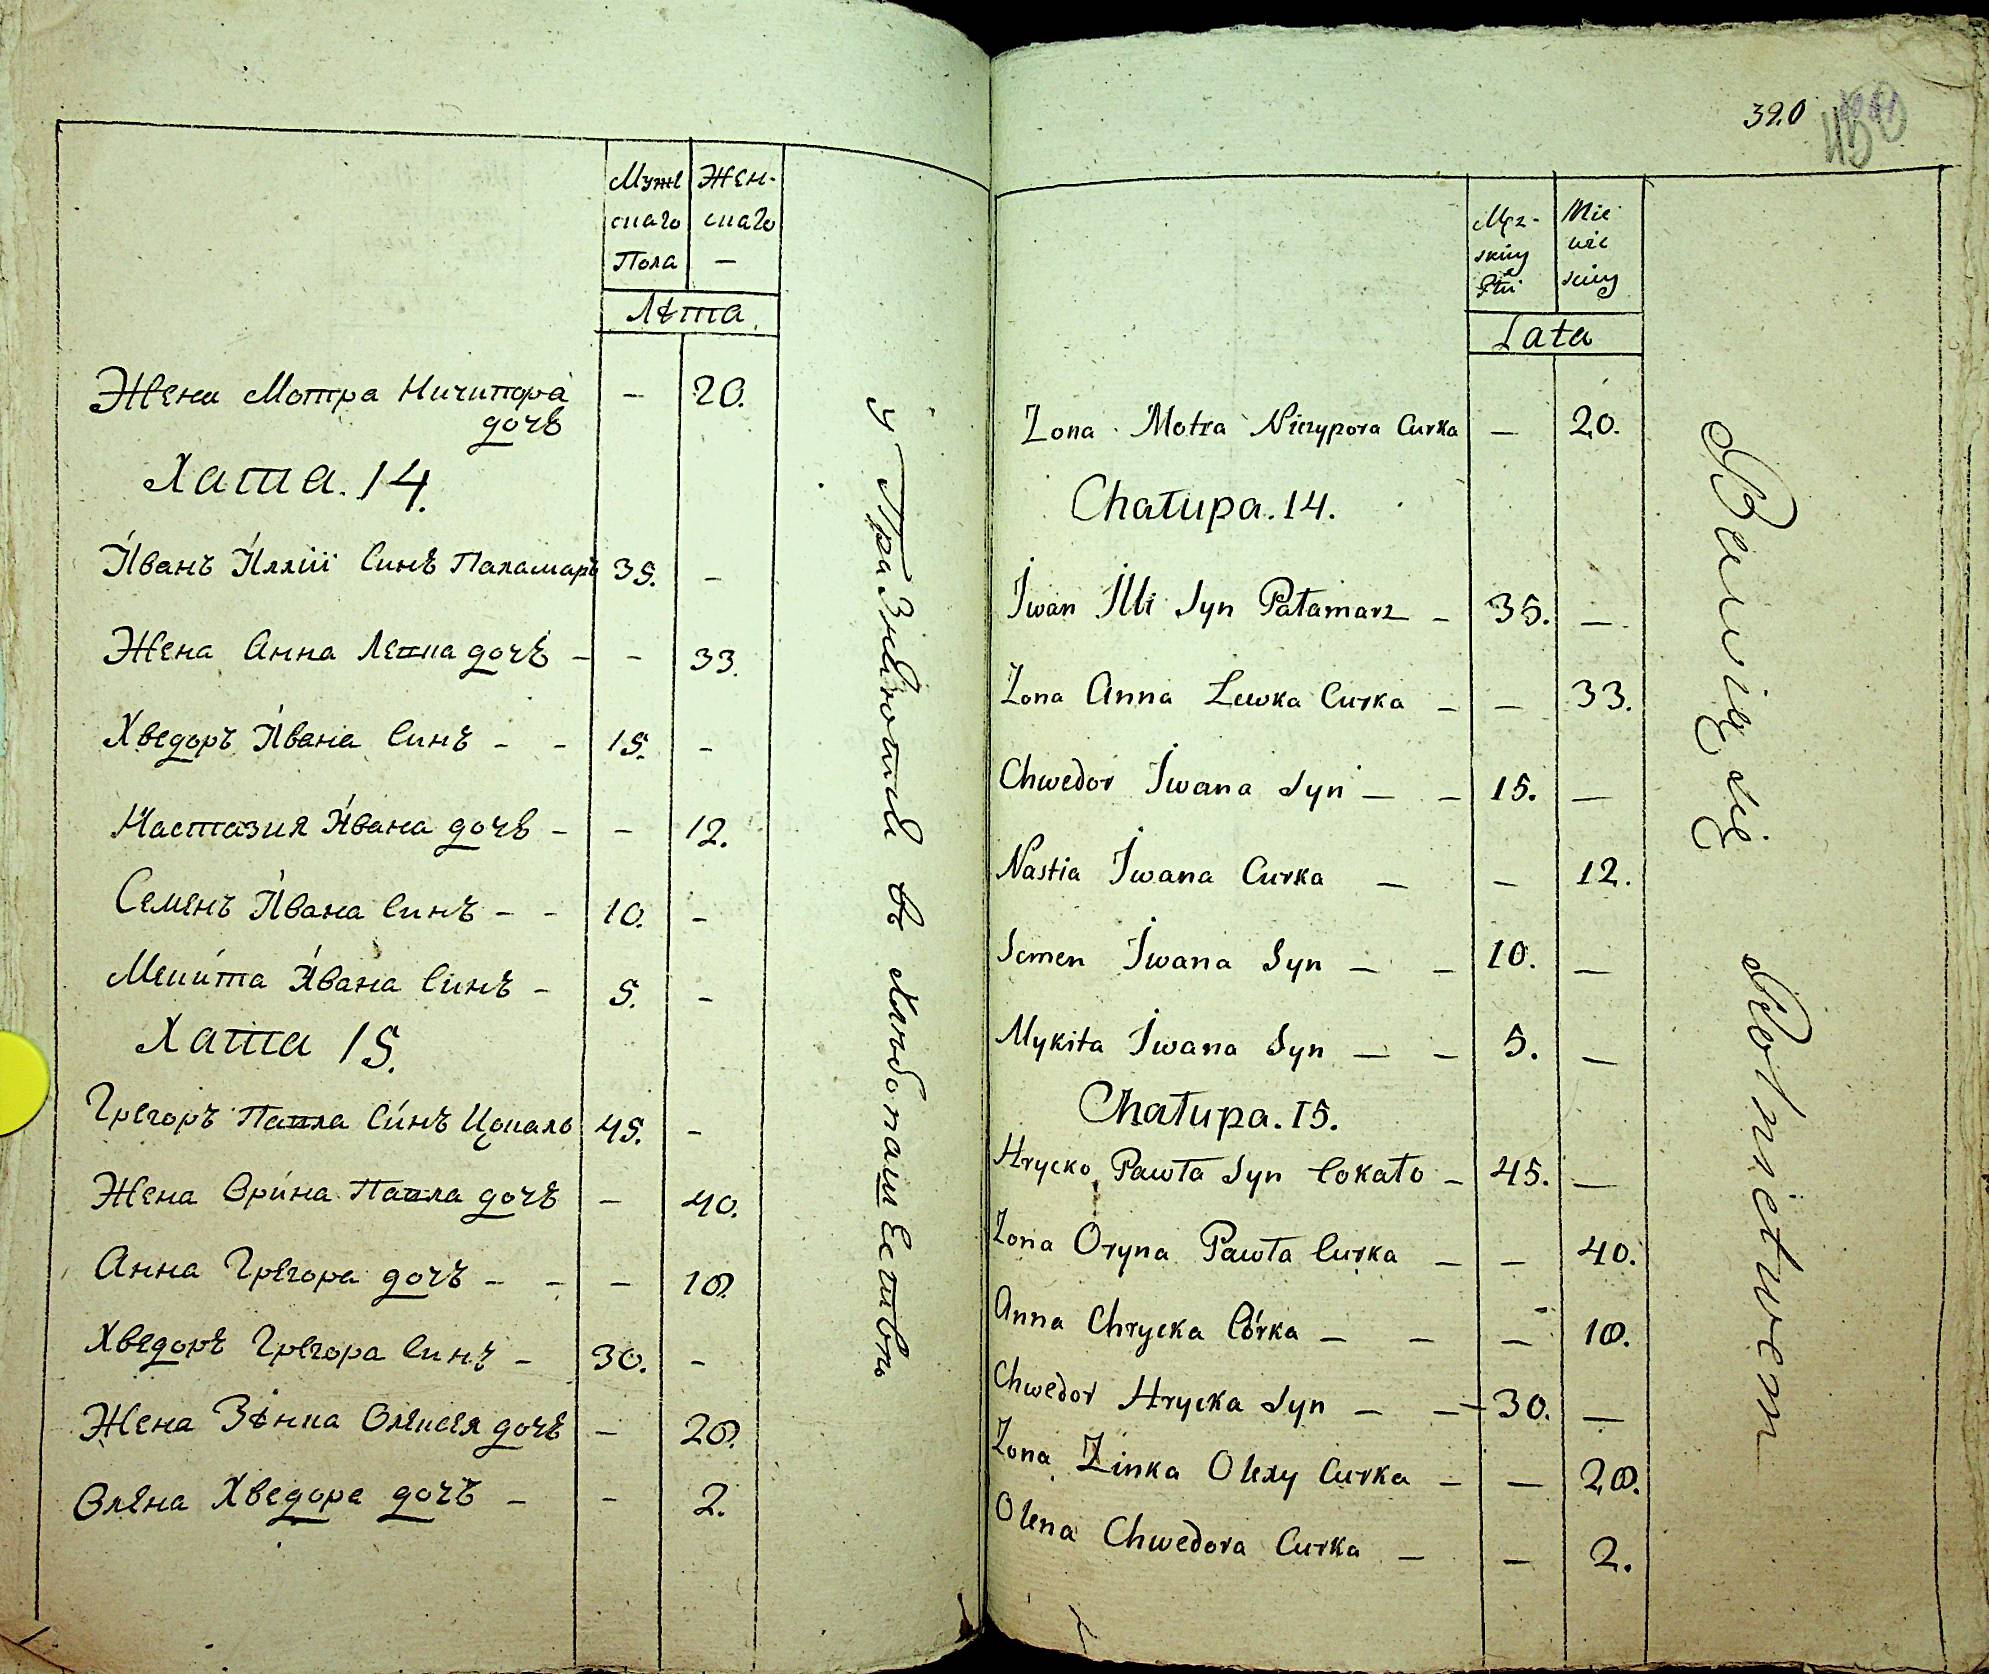 Муже
скаго
Пола
Жен-
скаго
—
Лѣта
Жена Мотра Ничипора — 20.
дочь
Хата. 14.
Иванъ Иллiи Синъ Паламарь 35. —
Жена Анна Левка дочь — — 33.
Хведоръ Ивана Синъ — — 15. —
Настазия Ивана дочь — — 12.
Семенъ Ивана Синъ — — 10. —
Микита Ивана Синъ — 5. —
Хата 15.
Грегоръ Павла Синъ Цокало 45. —
Жена Орина Павла дочь — 40.
Анна Грегора дочь — — — 18.
Хведоръ Грегора Синъ — 30. —
Жена Зѣнка Олексея дочь — 28.
Олена Хведора дочь — — 2.
в Хлѣбопашествѣ
390
Męz-
skiey
Płci
Lata
Zona Motra Niczypora Curka — 20.
Chałupa. 14.
Iwan Illi Syn Pałamarz — 35. —
Zona Anna Lewka Curka — — 33.
Chwedor Iwana Syn — — 15. —
Nastia Iwana Curka — — 12.
Semen Iwana Syn — — 10. —
Mykita Iwana Syn — — 5. —
Chałupa. 15.
Hrycko Pawła Syn Cokało — 45. —
Zona Oryna Pawła Curka — — 40.
Anna Chrycka Córka — — — 18.
Chwedor Hrycka Syn — — 30. —
Zona Zinka Olexy Curka — — 28.
Olena Chwedora Curka — — 2.
Bawią się Rolnictwem